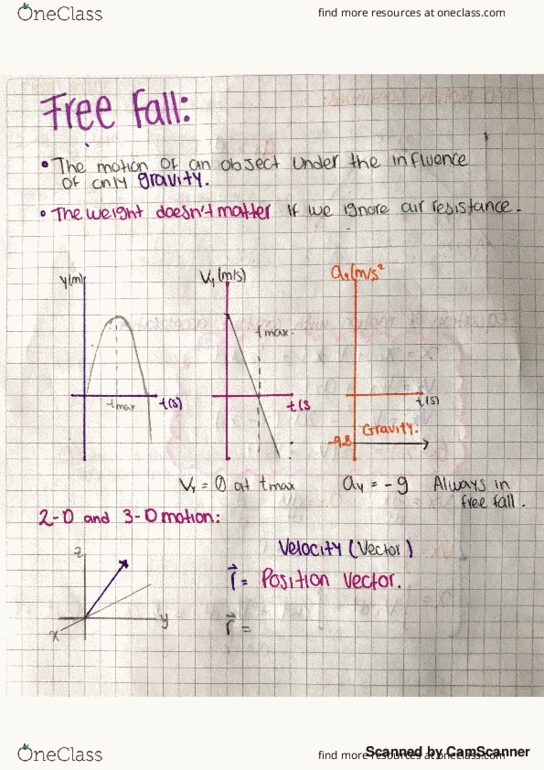 OneClass
find more resources at oneclass.com
Free Fall:
• The motion of an object under the influence
of only gravity.
• The weight doesn't matter if we ignore air resistance.
y(m)
Vy(m/s)
ay(m/s²
tmax.
tmax
t(s)
t(s
t(s)
Gravity.
-9.8
Vy = 0 at tmax
ay = -g Always in
free fall.
2-D and 3-D motion:
z
y
x
Velocity (Vector)
r⃗ = Position Vector.
r⃗ =
Scanned by CamScanner
OneClass
find more resources at oneclass.com